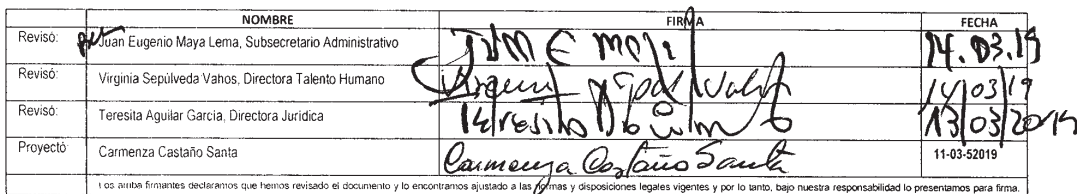 NOMBRE FIRMA FECHA
Revisó: Juan Eugenio Maya Lema, Subsecretario Administrativo 14.03.19
Revisó: Virginia Sepúlveda Vahos, Directora Talento Humano 14/03/19
Revisó: Teresita Aguilar García, Directora Jurídica 13/03/2019
Proyectó: Carmenza Castaño Santa Carmenza Castaño Santa 11-03-52019
Los arriba firmantes declaramos que hemos revisado el documento y lo encontramos ajustado a las normas y disposiciones legales vigentes y por lo tanto, bajo nuestra responsabilidad lo presentamos para firma.